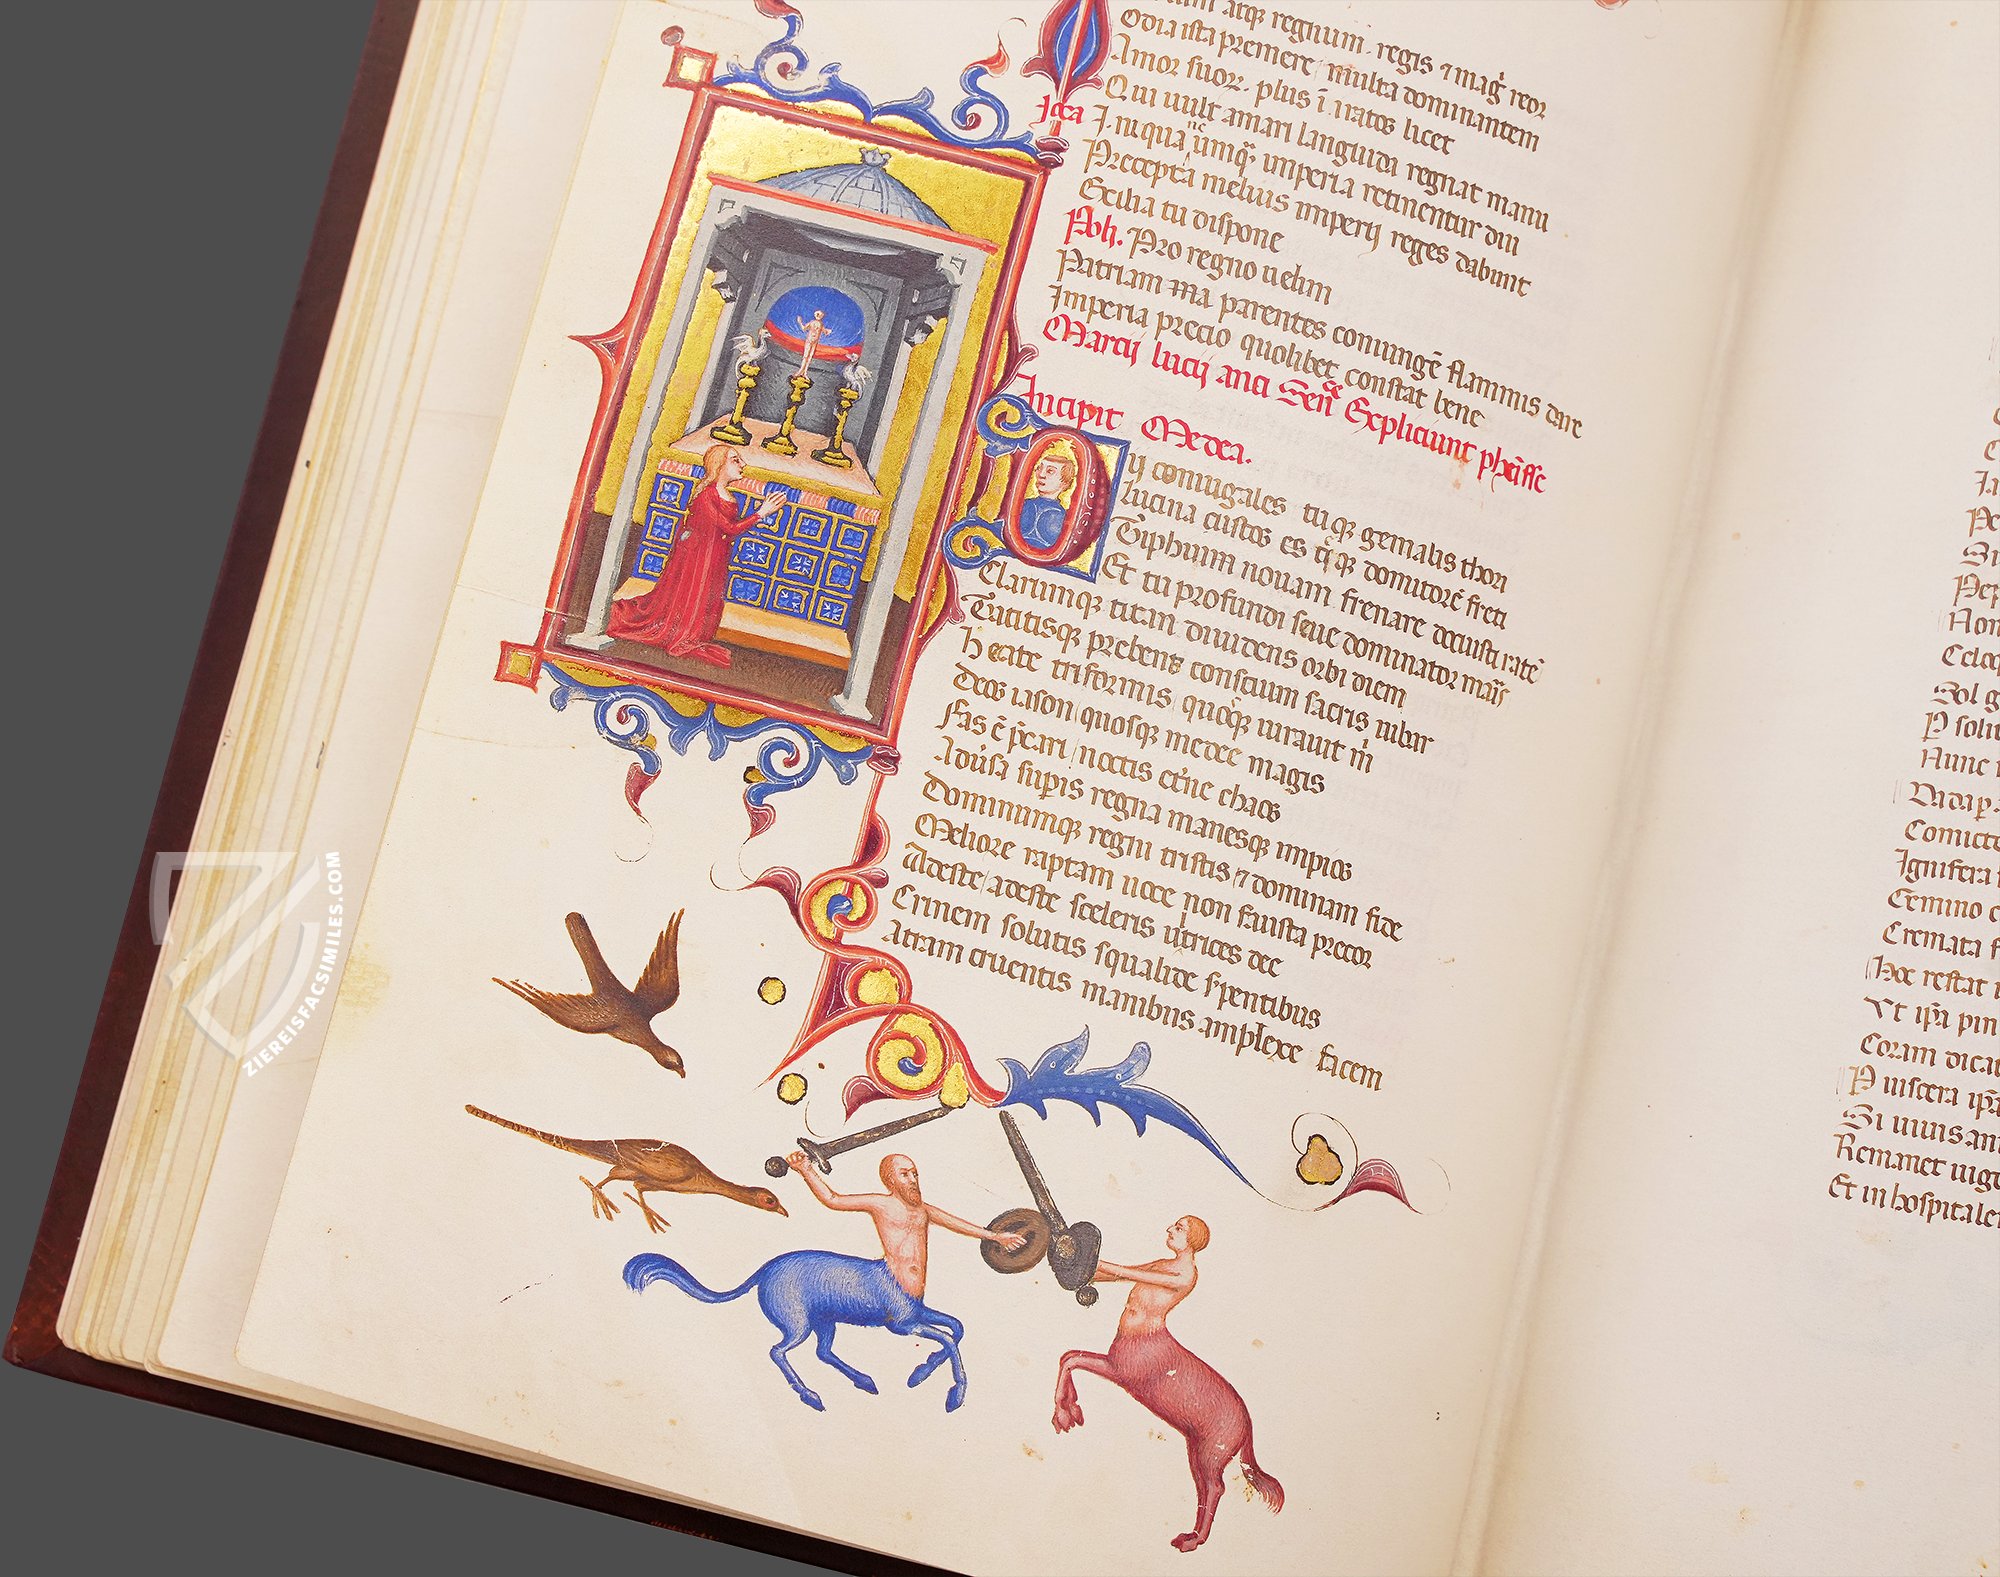 atq regnum. regis ⁊ mag' reor
Odia ista premere / multa dominantem
Amor suor. plus ī. natos licet
Qui uult amari languida regnat manu
Ioca
Iniqua nc̄ umq̄ imperia retinentur diu
Precepta melius imperij reges dabunt
Exilia tu dispone
Poli. Pro regno uelim
Patriam ma parentes coniungē flammis dare
Imperia precio quolibet constat bene
Marcij lucij anei Senēce Expliciunt pheisse
Incipit Medea.
Dij coniugales tuq gemalis thori
Lucina custos es q̄q domitorē freti
Tiphuim nouam frenare docuisti ratē
Et tu profundi seue dominator maris
Clarumq titan diuidens orbi diem
Tacitisq prebens conscium sacris iubar
hecate triformis / quosq iurauit m̄
Deos iason / quosq medee magis
fas ē p̄cari / noctis et'ne chaos
Adu'sa sup̄is regna manesq impios
Dominumq regni tristis ⁊ dominam fide
Meliore raptam uoce non fausta precor
Adeste / adeste sceleris ut'ices dee
Crinem solutis squalide s'pentibus
Atram cruentis manibus amplexe facem
Sol g
P solit
Nunc
Cremata f
hoc restat
Vt ip̄a pin
Coram dicat
P uiscera ip̄a
Si uiuis an
Remanet uig
Et inhospitale
ZIEREISFACSIMILES.COM